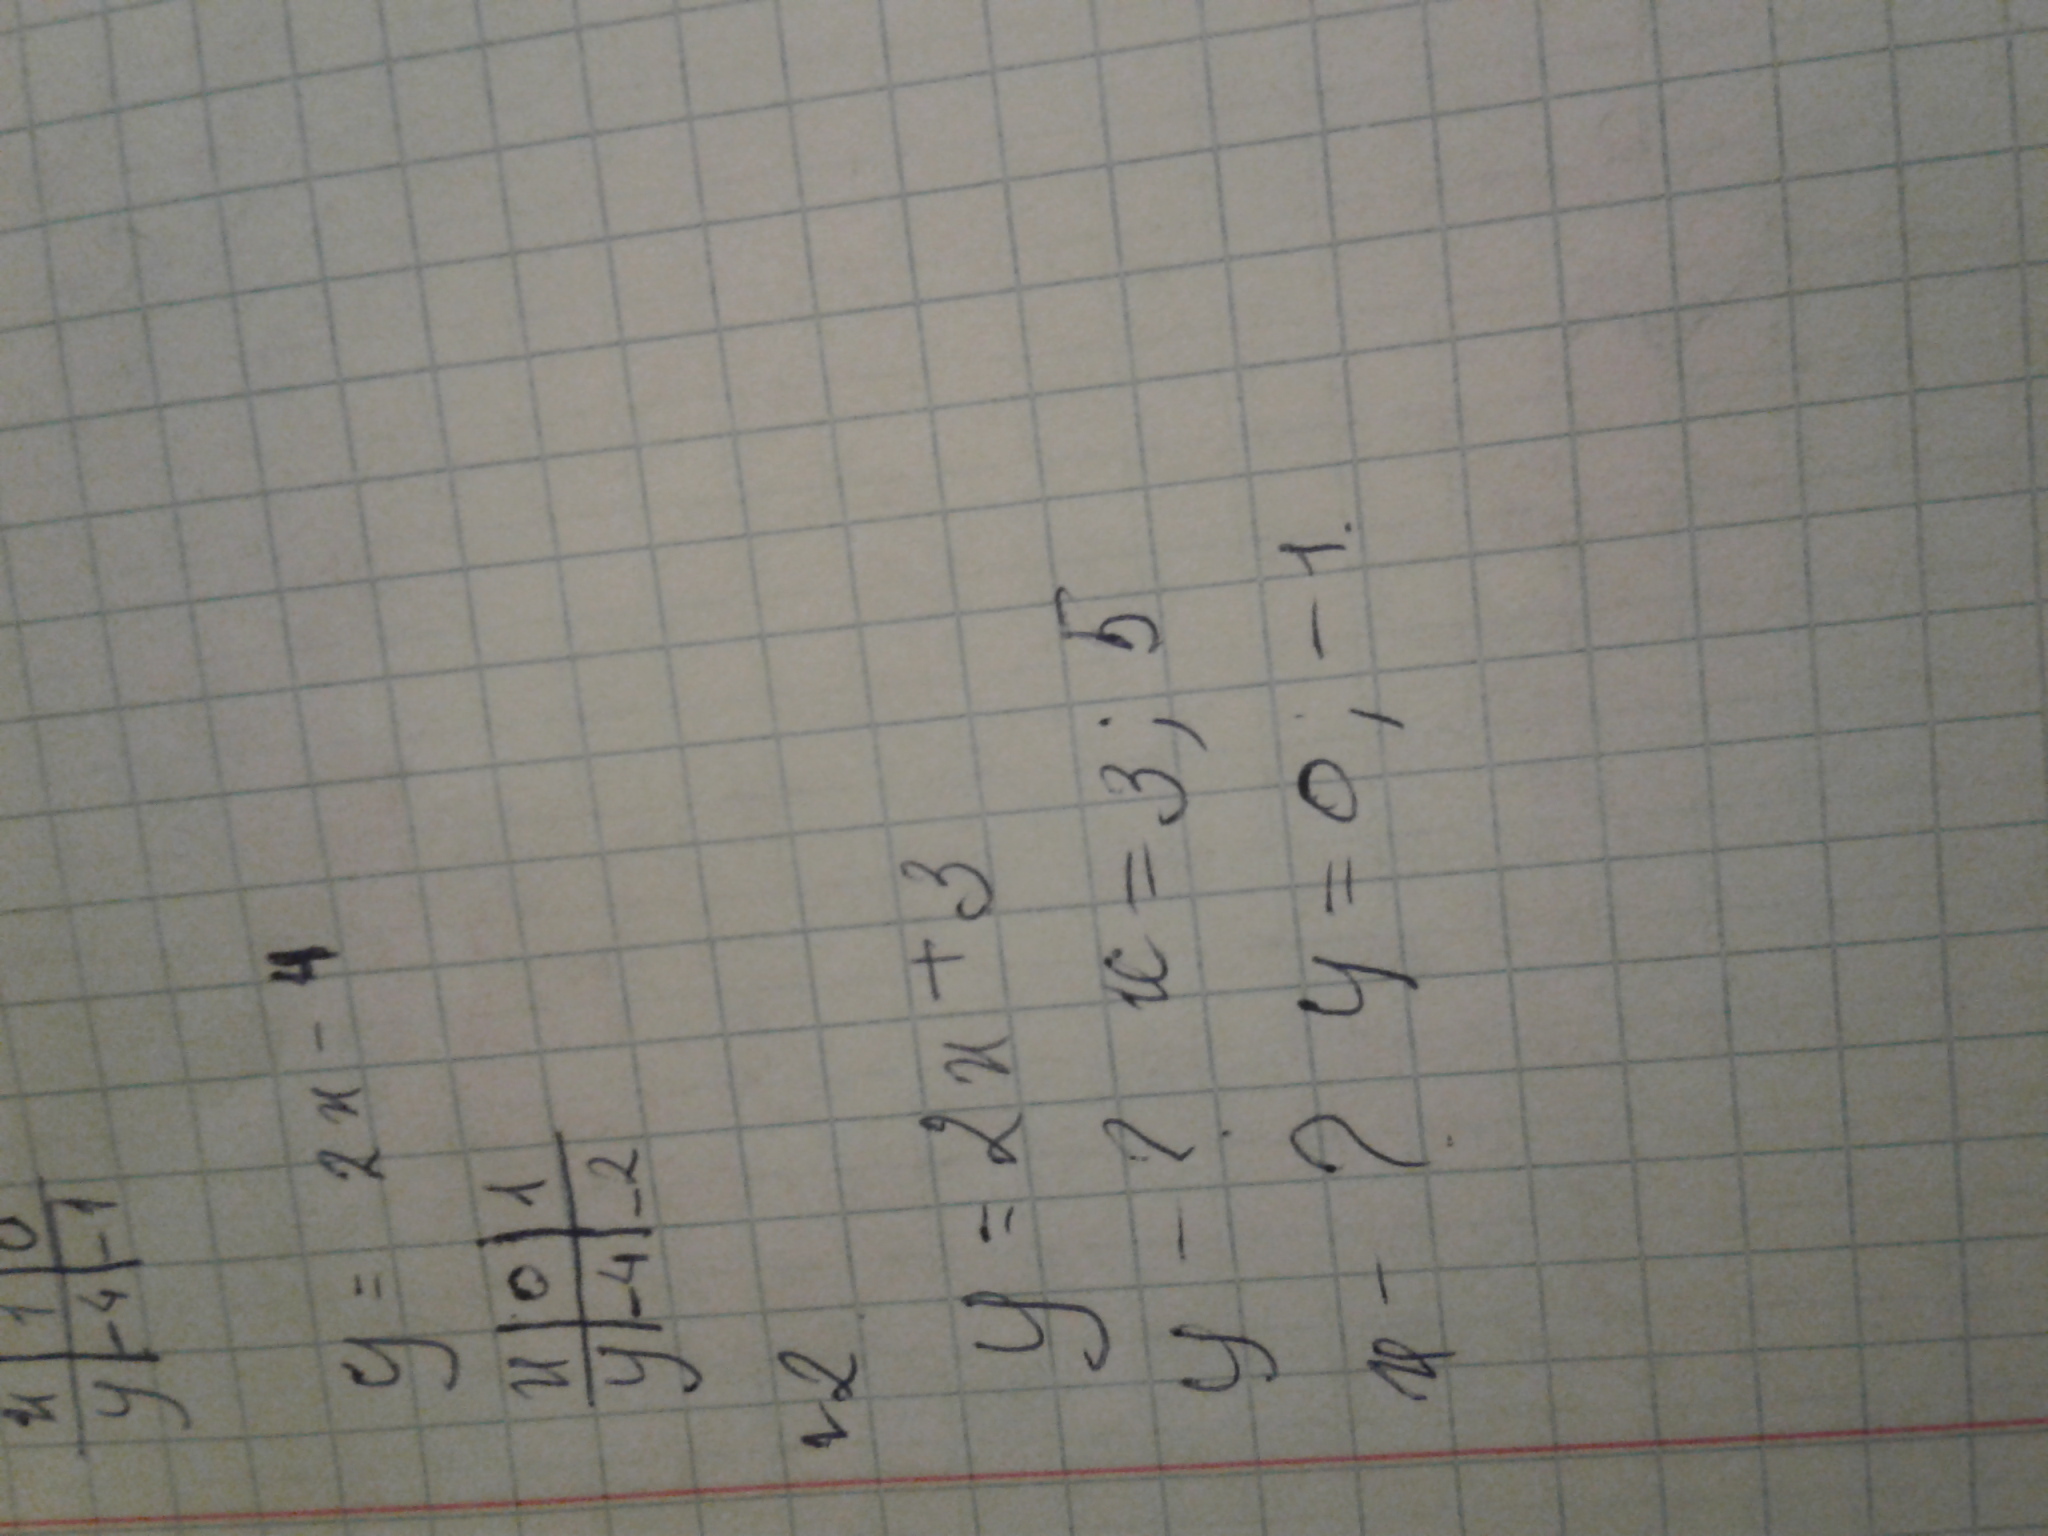 x | 1 | 0
y | -4 | -1
y = 2x - 4
x | 0 | 1
y | -4 | -2
№2
y = 2x + 3
y - ? x = 3; 5
x - ? y = 0; -1.